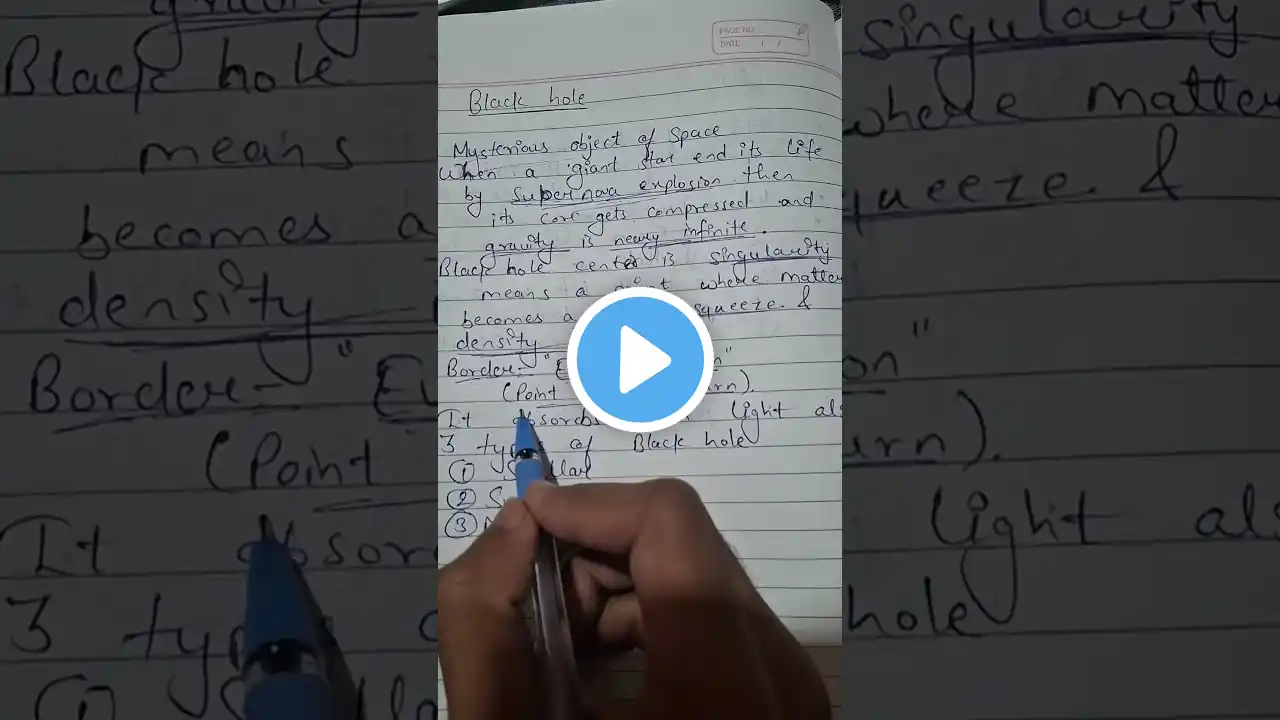 PAGE NO
DATE / /
Black hole
Mysterious object of Space
When a giant star end its life
by Supernova explosion then
its core gets compressed and
gravity is nearly infinite.
Black hole center is singularity
means a where matter
becomes a squeeze. &
density
Border- "
(Point
It absorbs light als
3 types of Black hole
① Stellar
②
③